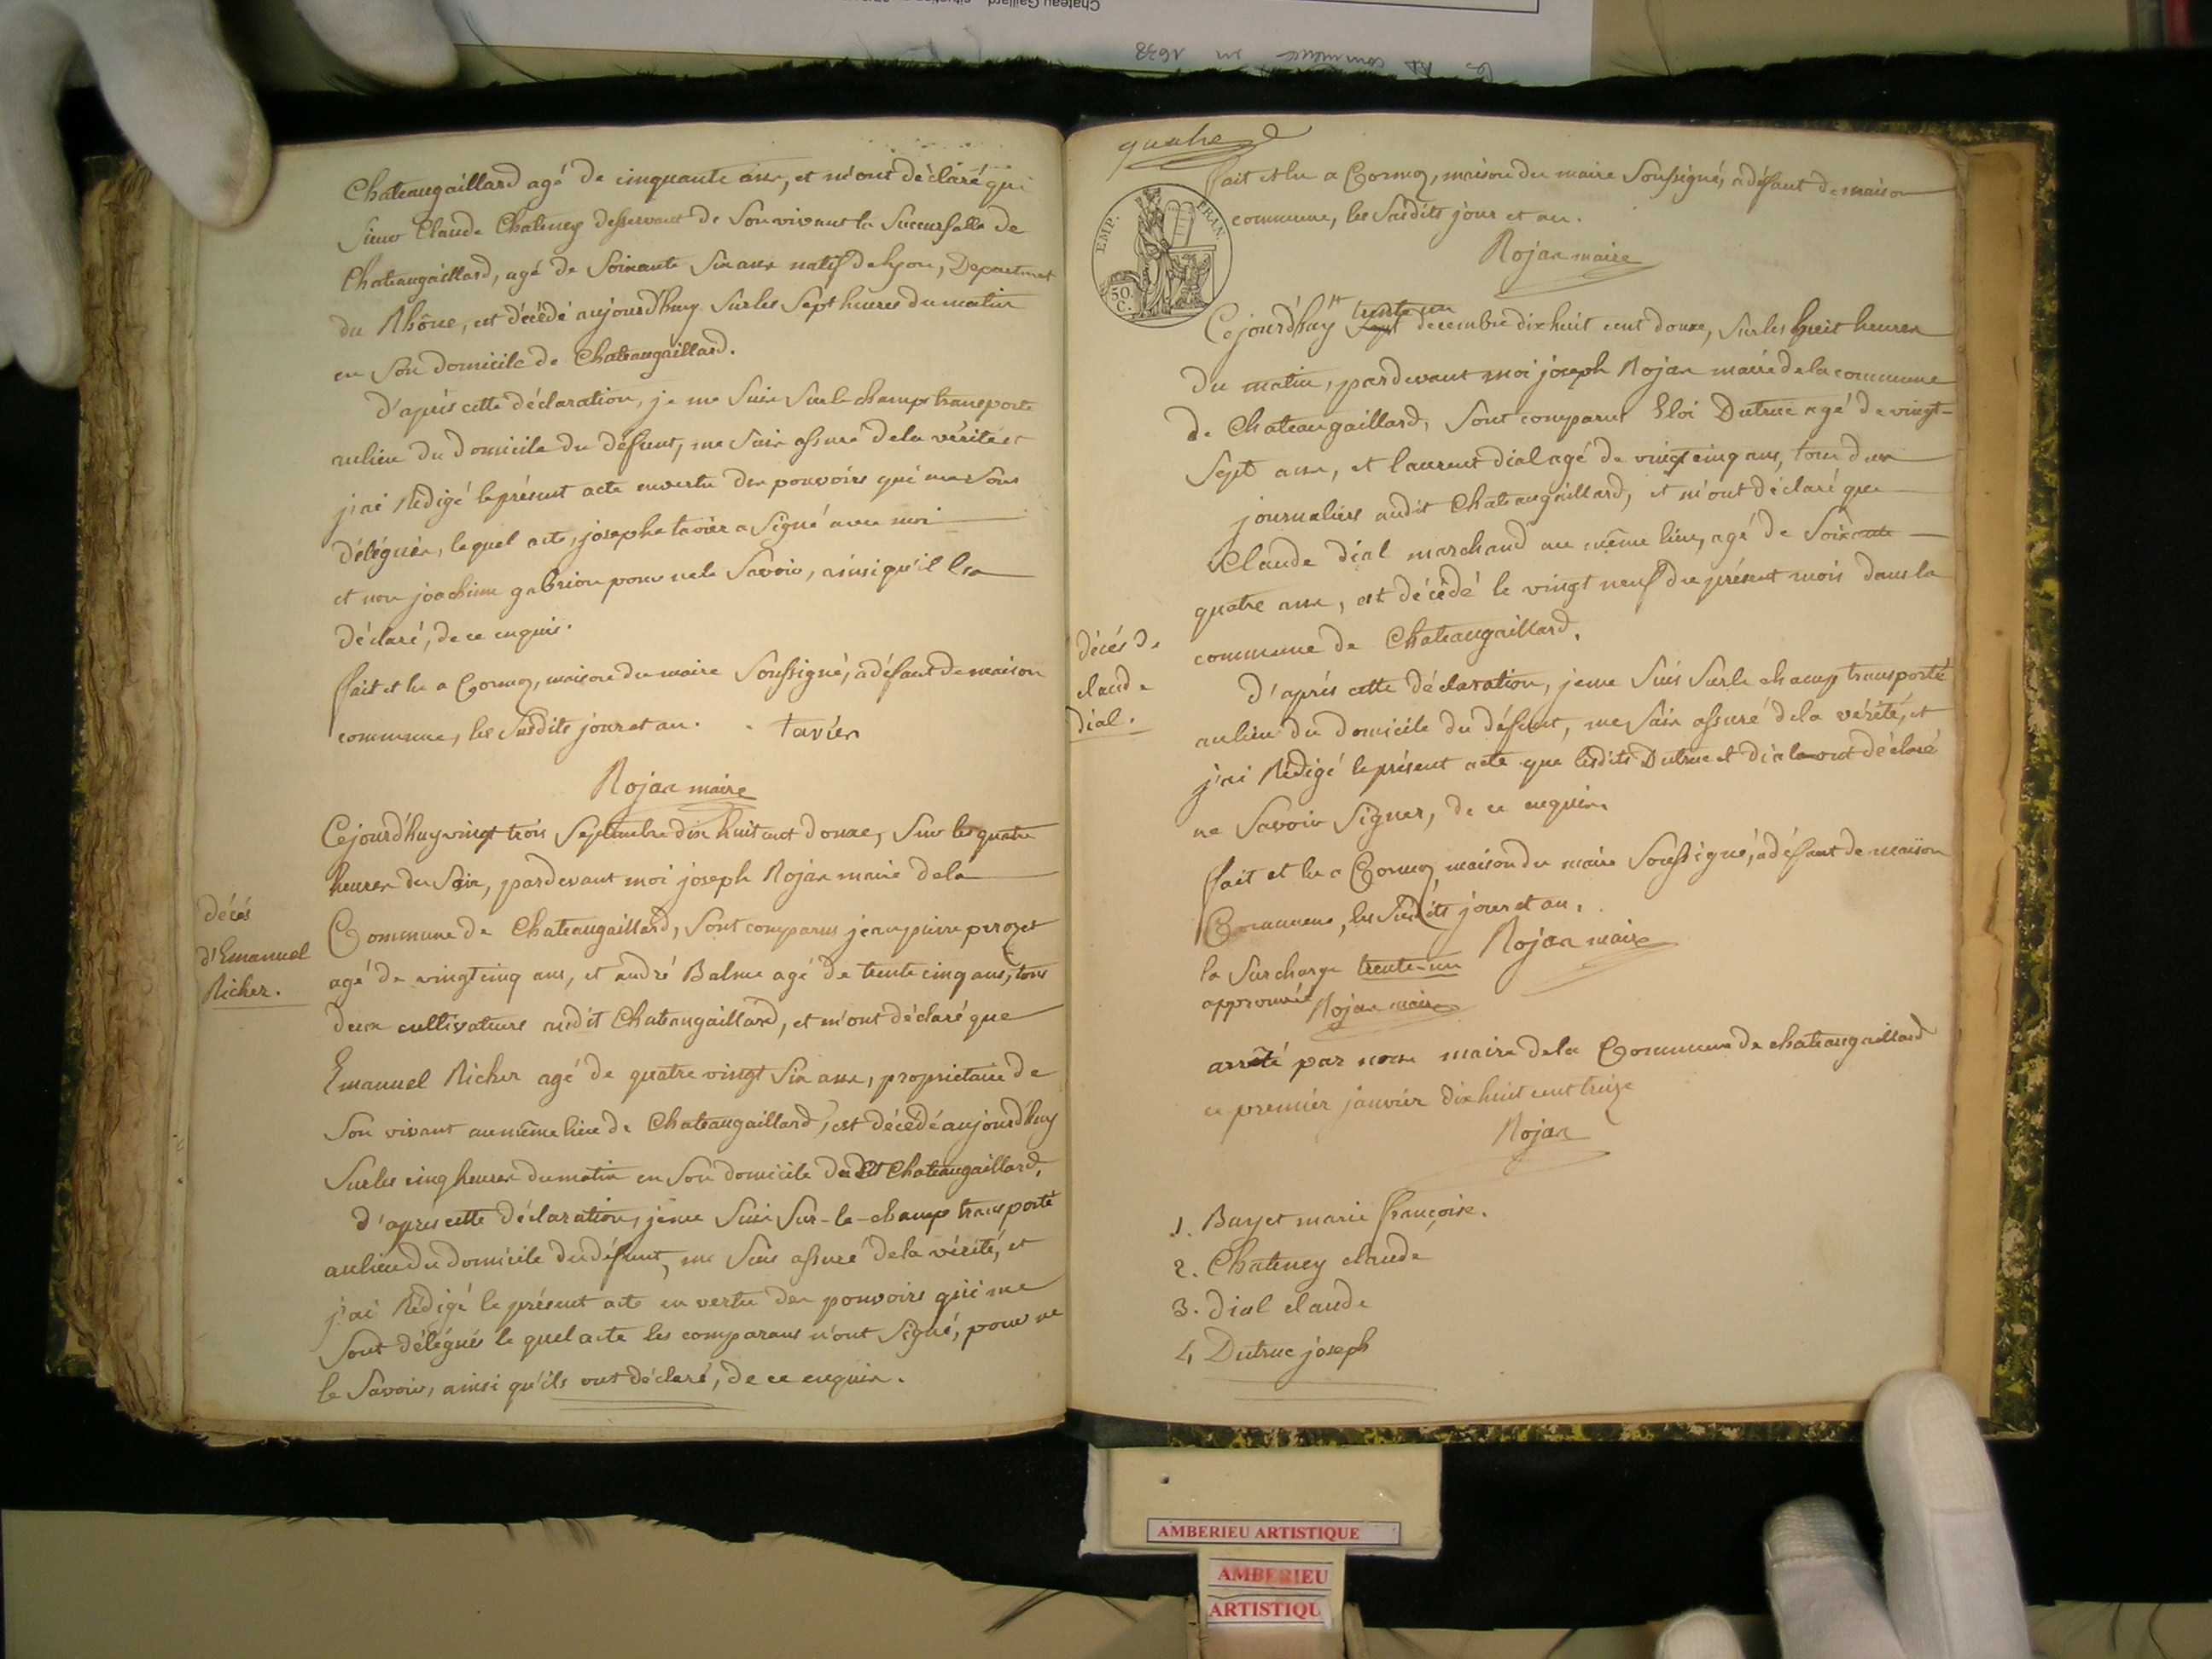 Chateaugaillard agé de cinquante ans, et m'ont déclaré que
Sieur Claude Chateney desservant de son vivant la Succursalle de
Chateaugaillard, agé de Soixante Six ans natif de Lyon, Departement
du Rhône, est décédé aujourd'huy Sur les Sept heures du matin
en Son domicile de Chateaugaillard.
d'après cette déclaration, je me Suis Sur le champ transporté
au lieu du domicile du défunt, me Suis assuré de la vérité et
j'ai Rédigé le présent acte en vertu des pouvoirs qui me Sont
délégués, lequel acte, joseph tavier a Signé avec moi
et non joachim gabrion pour ne le Savoir, ainsi qu'il l'a
déclaré, de ce enquis.
fait et lu a Cormoz, maison du maire Soussigné, a défaut de maison
commune, les Susdits jour et an. tavier
Rojan maire
décés
d'Emanuel
Richer.
Cejourd'huy vingt trois Septembre dix huit cent douze, Sur les quatre
heures du Soir, pardevant moi joseph Rojan maire de la
Commune de Chateaugaillard, Sont comparus jean pierre perozet
agé de vingt cinq ans, et andré Balme agé de trente cinq ans, tous
deux cultivateurs audit Chateaugaillard, et m'ont déclaré que
Emanuel Richer agé de quatre vingt Six ans, propriétaire de
Son vivant au même lieu de Chateaugaillard, est décédé aujourd'huy
Sur les cinq heures du matin en Son domicile dudit Chateaugaillard.
d'après cette déclaration, je me Suis Sur-le-champ transporté
au lieu du domicile du défunt, me Suis assuré de la vérité, et
j'ai Rédigé le présent acte en vertu des pouvoirs qui me
Sont délégués le quel acte les comparans n'ont Signé, pour ne
le Savoir, ainsi qu'ils ont déclaré, de ce enquis.
quatre
EMP. FRAN.
50. C.
fait et lu a Cormoz, maison du maire Soussigné, a défaut de maison
commune, les Susdits jour et an.
Rojan maire
trente un
Cejourd'huy decembre dix huit cent douze, Sur les huit heures
du matin, pardevant moi joseph Rojan maire de la commune
de Chateaugaillard, Sont comparus Eloi Dutruc agé de vingt-
Sept ans, et laurent dial agé de vingt cinq ans, tous deux
journaliers audit Chateaugaillard, et m'ont déclaré que
Claude dial marchand au même lieu, agé de Soixante
quatre ans, est décédé le vingt neuf du présent mois dans la
commune de Chateaugaillard.
décés de
claude
dial.
d'après cette déclaration, je me Suis Sur le champ transporté
au lieu du domicile du défunt, me Suis assuré de la vérité, et
j'ai Rédigé le présent acte que lesdits Dutruc et dial ont déclaré
ne Savoir Signer, de ce enquis
fait et lu a Cormoz maison du maire Soussigné, a défaut de maison
Commune, les Susdits jour et an.
Rojan maire
la Surcharge trente-un
approuvée Rojan maire
arrêté par nous maire de la Commune de chateaugaillard
ce premier janvier dix huit cent treize
Rojan
1. Bayet marie françoise.
2. Chateney claude
3. dial claude
4, Dutruc joseph
AMBERIEU ARTISTIQUE
AMBERIEU
ARTISTIQU